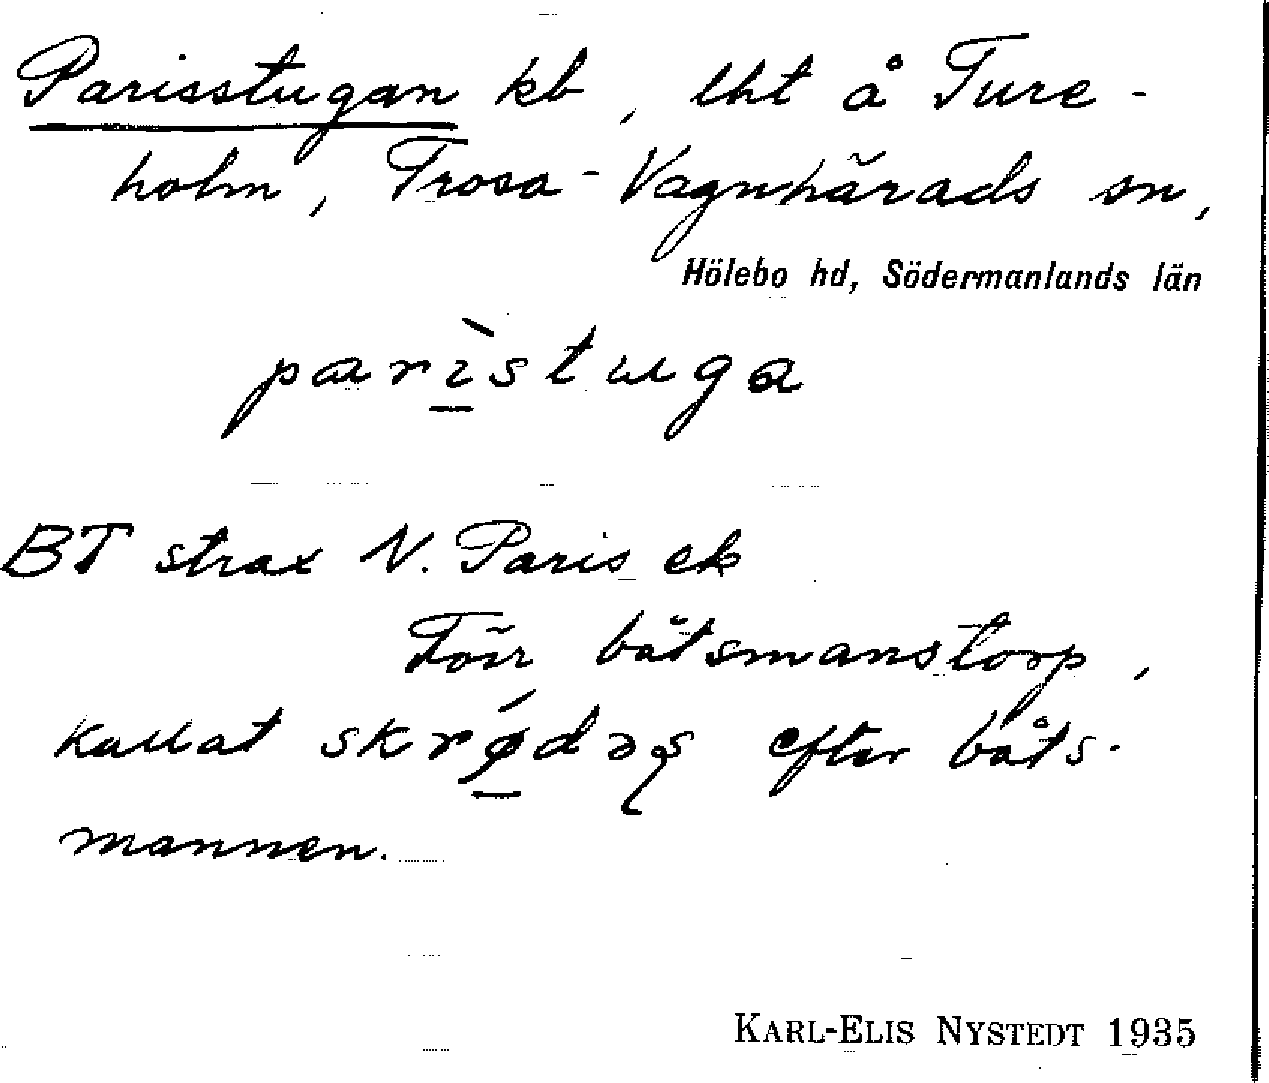 Parisstugan kb, lht å Ture-
holm, Trosa-Vagnhärads sn,
Hölebo hd, Södermanlands län
parìstuga
BT strax N. Paris ek
Förr båtsmanstorp,
kallat skrǿdəs efter båts-
mannen.
KARL-ELIS NYSTEDT 1935